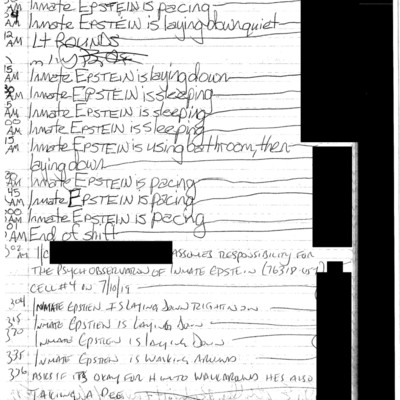 AM Inmate EPSTEIN is pacing
4 AM Inmate EPSTEIN is laying down quiet
12 AM Lt ROUNDS
15 AM Inmate EPSTEIN is laying down
30 AM Inmate EPSTEIN is sleeping
5 AM Inmate EPSTEIN is sleeping
00 AM Inmate EPSTEIN is sleeping
15 AM Inmate EPSTEIN is using bathroom, then
laying down
30 AM Inmate EPSTEIN is pacing
45 AM Inmate EPSTEIN is pacing
00 AM Inmate EPSTEIN is pacing
01 AM End of shift
302 AM I/C ASSUMES RESPONSIBILITY FOR
THE PSYCH OBSERVATION OF INMATE EPSTEIN (76318-
CELL #4 IN 7/10/19
304 INMATE EPSTIEN IS LAYING DOWN RIGHT NOW
315 INMATE EPSTIEN IS LAYING DOWN
320 INMATE EPSTIEN IS LAYING DOWN
335 INMATE EPSTIEN IS WALKING AROUND
336 ASKS IF ITS OKAY FOR HIM TO WALK AROUND HES ALSO
TAKING A PEE